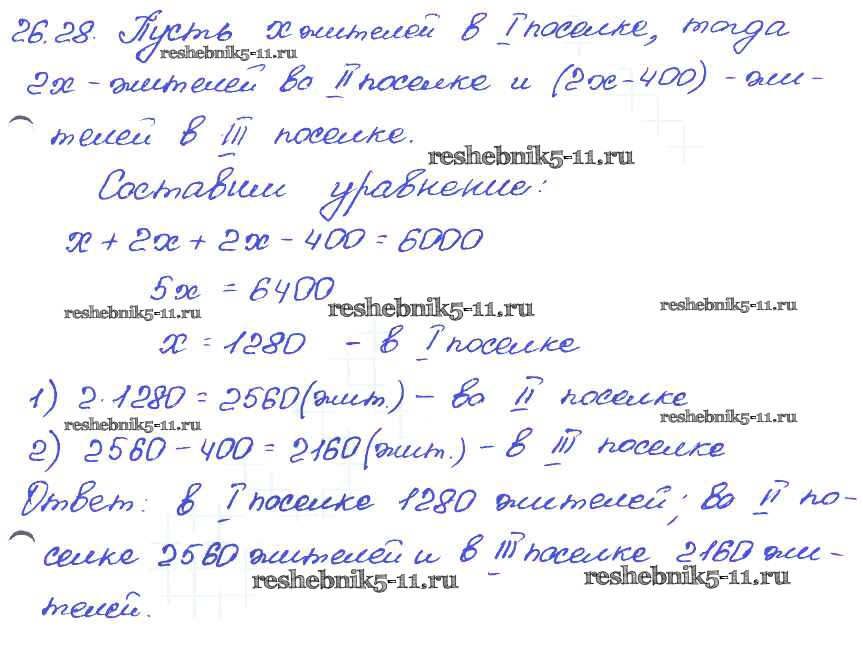 26.28. Пусть x жителей в I поселке, тогда
reshebnik5-11.ru
2x - жителей во II поселке и (2x-400) - жи-
телей в III поселке.
reshebnik5-11.ru
Составим уравнение:
x + 2x + 2x - 400 = 6000
5x = 6400
reshebnik5-11.ru reshebnik5-11.ru reshebnik5-11.ru
x = 1280 - в I поселке
1) 2·1280 = 2560 (жит.) - во II поселке
reshebnik5-11.ru reshebnik5-11.ru
2) 2560 - 400 = 2160 (жит.) - в III поселке
Ответ: в I поселке 1280 жителей; во II по-
селке 2560 жителей и в III поселке 2160 жи-
reshebnik5-11.ru reshebnik5-11.ru
телей.